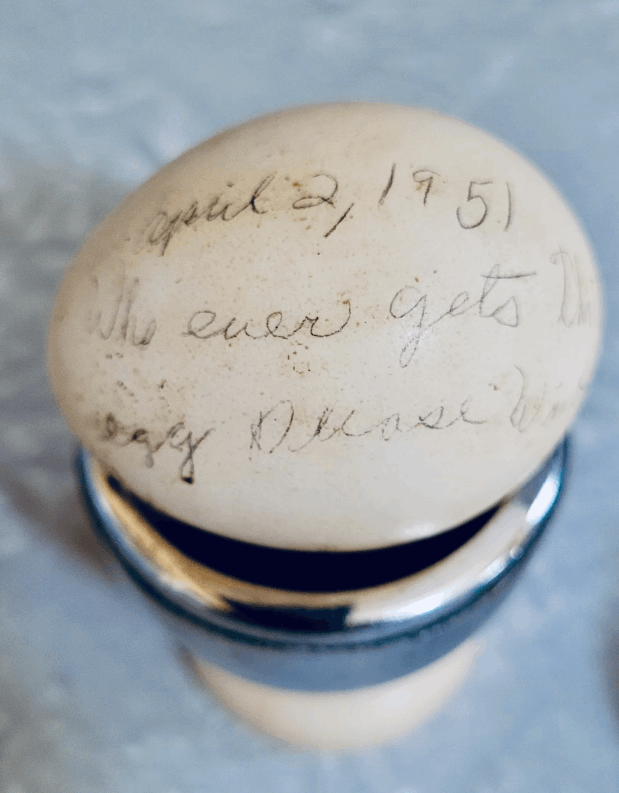 april 2, 1951
Who ever gets Thi
egg Please Wri